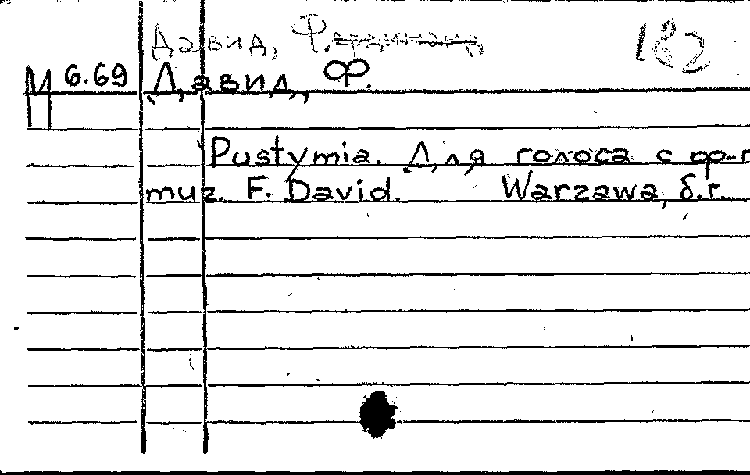 Давид, Ф. 182
М 6.69 Давид, Ф.
Pustymia. Для голоса с ф-п
muz. F. David. Warzawa, б.г.